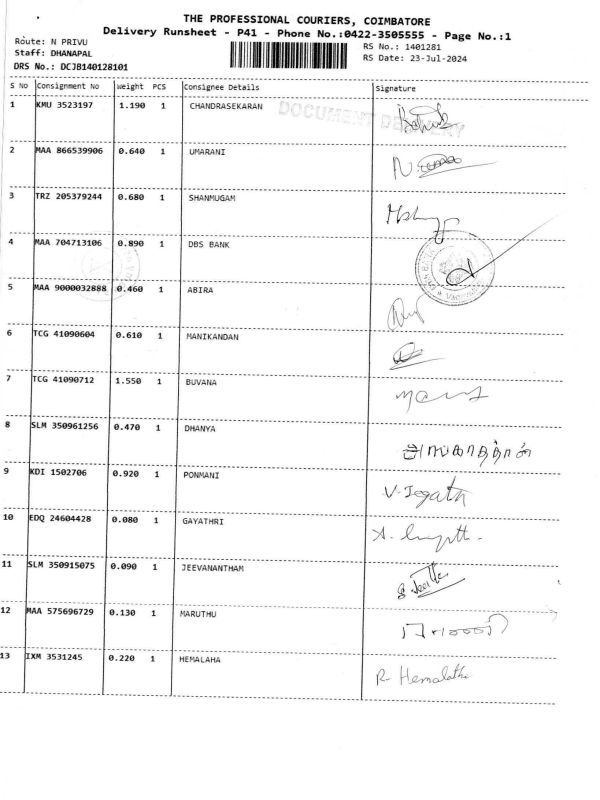 THE PROFESSIONAL COURIERS, COIMBATORE
Delivery Runsheet - P41 - Phone No.:0422-3505555 - Page No.:1
Route: N PRIVU
RS No.: 1401281
Staff: DHANAPAL
RS Date: 23-Jul-2024
DRS No.: DCJB140128101
S No Consignment No Weight PCS Consignee Details Signature
1 KMU 3523197 1.190 1 CHANDRASEKARAN
DOCUMENT DELIVERY
2 MAA 866539906 0.640 1 UMARANI
3 TRZ 205379244 0.680 1 SHANMUGAM
4 MAA 704713106 0.890 1 DBS BANK
5 MAA 9000032888 0.460 1 ABIRA
6 TCG 41090604 0.610 1 MANIKANDAN
7 TCG 41090712 1.550 1 BUVANA
8 SLM 350961256 0.470 1 DHANYA
9 KDI 1502706 0.920 1 PONMANI V. Jegata
10 EDQ 24604428 0.080 1 GAYATHRI
11 SLM 350915075 0.090 1 JEEVANANTHAM
12 MAA 575696729 0.130 1 MARUTHU
13 IXM 3531245 0.220 1 HEMALAHA R- Hemalatha